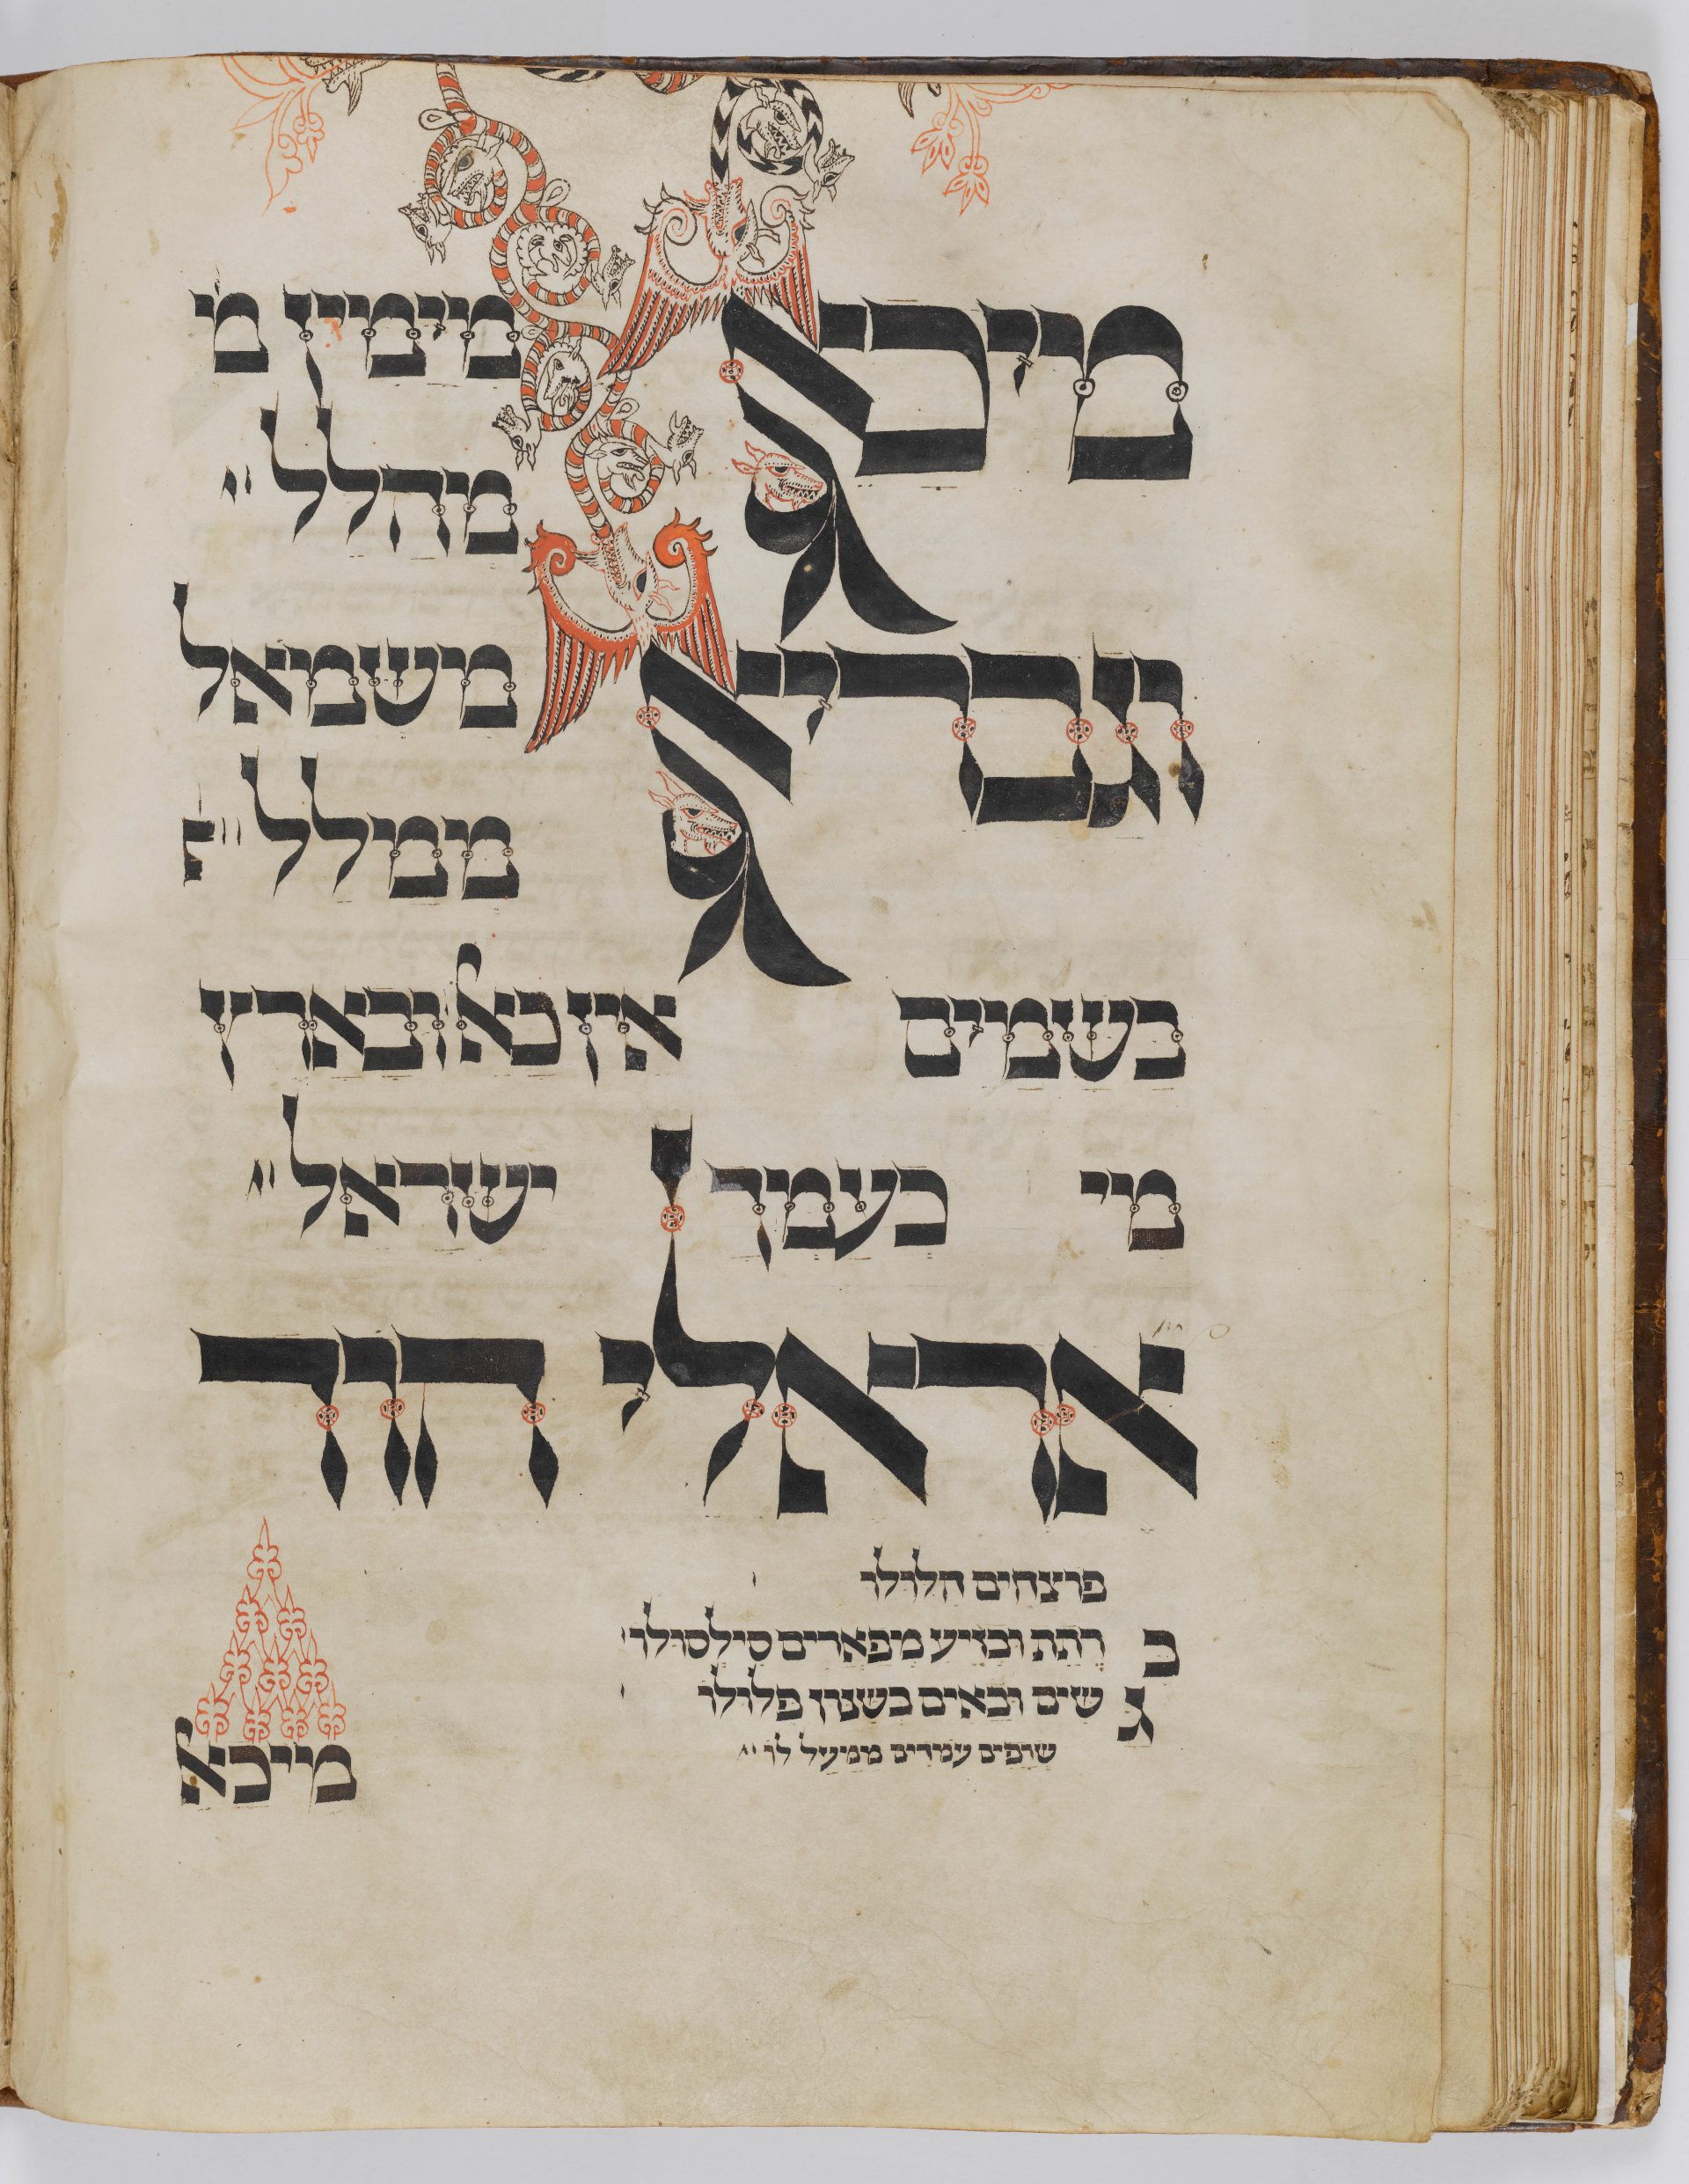 מיכאל מימין מ
מהלל
וגבריאל משמאל
ממלל
בשמים אין כאל ובארץ
מי כעמך ישראל
אראלי הוד
פוצחים הלולו
ברתת ובזיע מפארים סילסולו
גשים ובאים בשנון פלולו
שרפים עמדים ממעל לו
מיכאל